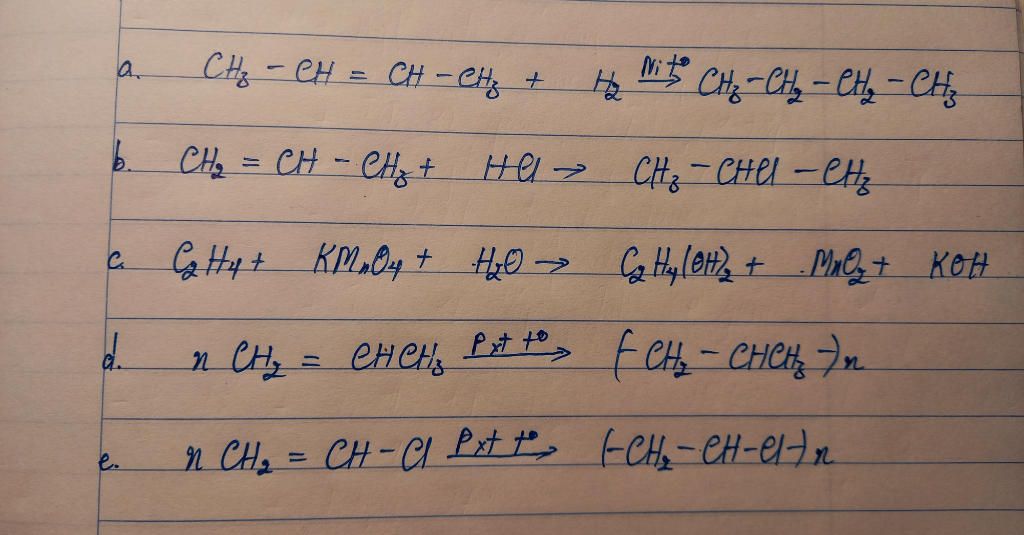 a. CH₃ – CH = CH – CH₃ + H₂ Ni t° → CH₃ – CH₂ – CH₂ – CH₃
b. CH₂ = CH – CH₃ + HCl → CH₃ – CHCl – CH₃
c. C₂H₄ + KMnO₄ + H₂O → C₂H₄(OH)₂ + MnO₂ + KOH
d. n CH₂ = CHCH₃ P xt t° → (– CH₂ – CHCH₃ –)n
e. n CH₂ = CH – Cl P xt t° → (– CH₂ – CH – Cl –)n